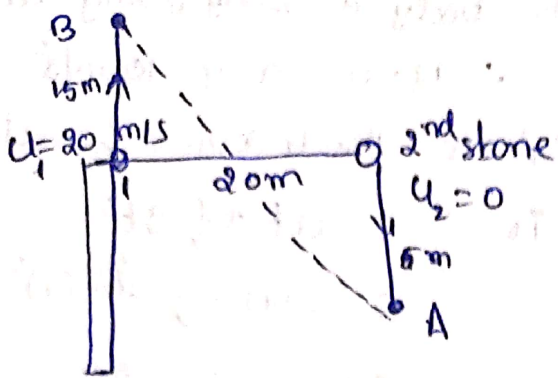 B
15m
U₁=20 m/s
1
20m
2nd stone
U₂=0
5m
A